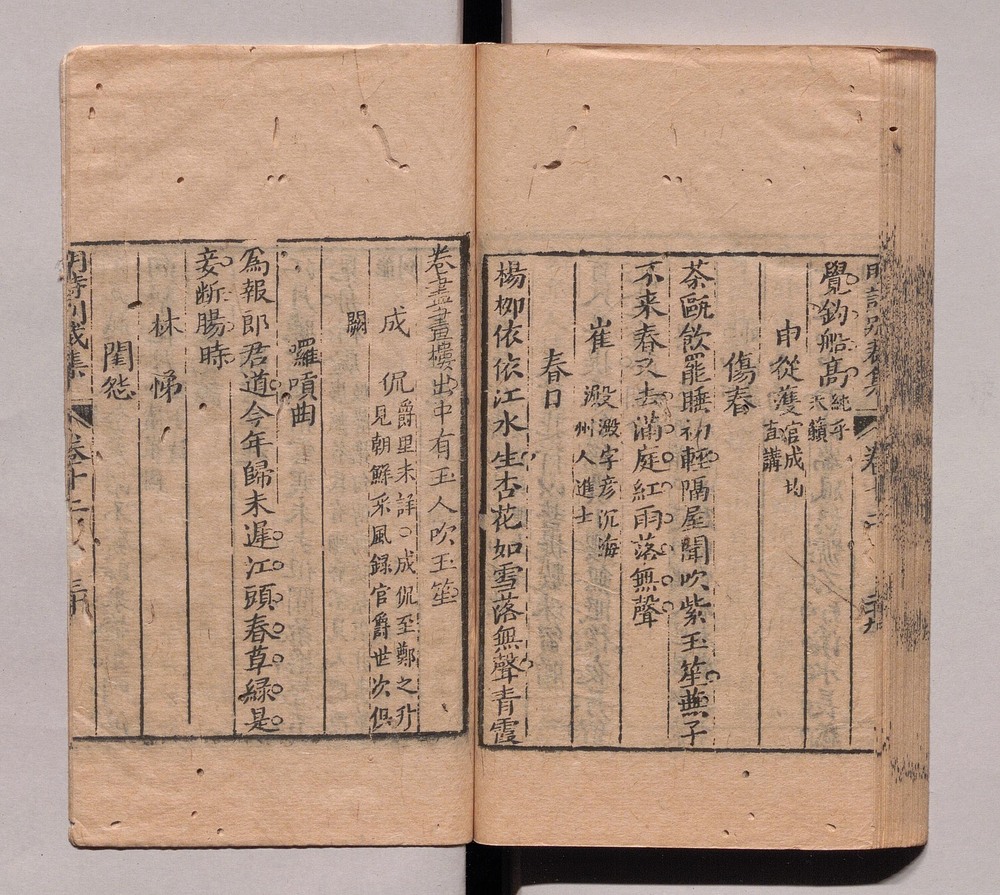 覺釣船高純乎天籟
申從濩官成均直講
傷春
茶甌飲罷睡初輕隔屋聞吹紫玉笙蕪子
不来春又去滿庭紅雨落無聲
崔澱澱字彦沉海州人進士
春日
楊柳依依江水生杏花如雪落無聲青霞
卷盡畫樓出中有玉人吹玉笙
成侃爵里未詳○成侃至鄭之升見朝鮮采風録官爵世次俱闕
囉嗊曲
爲報郎君道今年歸未遲江頭春草緑是
妾断腸時
林悌
閨怨
明詩別裁集 卷十二 三十